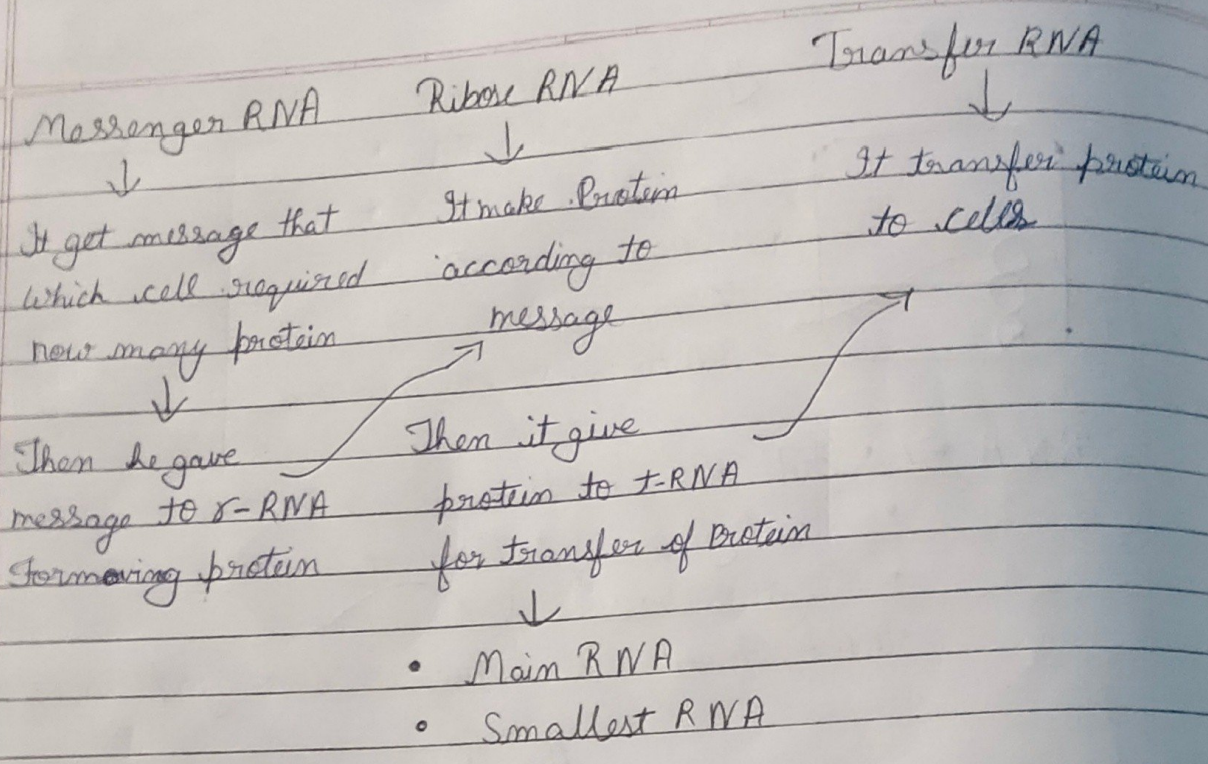 Messenger RNA
↓
It get message that
which cell required
now many protein
↓
Then he gave
message to r-RNA
formoving protein
Ribose RNA
↓
It make Protein
according to
message
Then it give
protein to t-RNA
for transfer of protein
↓
• Main RNA
• Smallest RNA
Transfer RNA
↓
It transfer protein
to cells